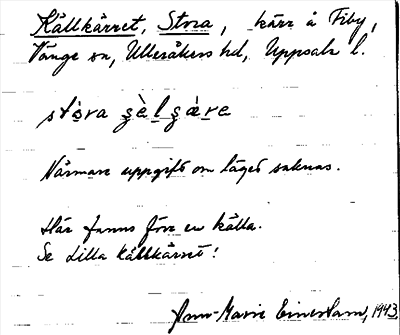 Källkärret, Stora, kärr å Fiby,
Vänge sn, Ulleråkers hd, Uppsala l.
stora
Närmare uppgift om läget saknas.
Här fanns förr en källa.
Se Lilla Källkärret!
Ann-Marie 1943